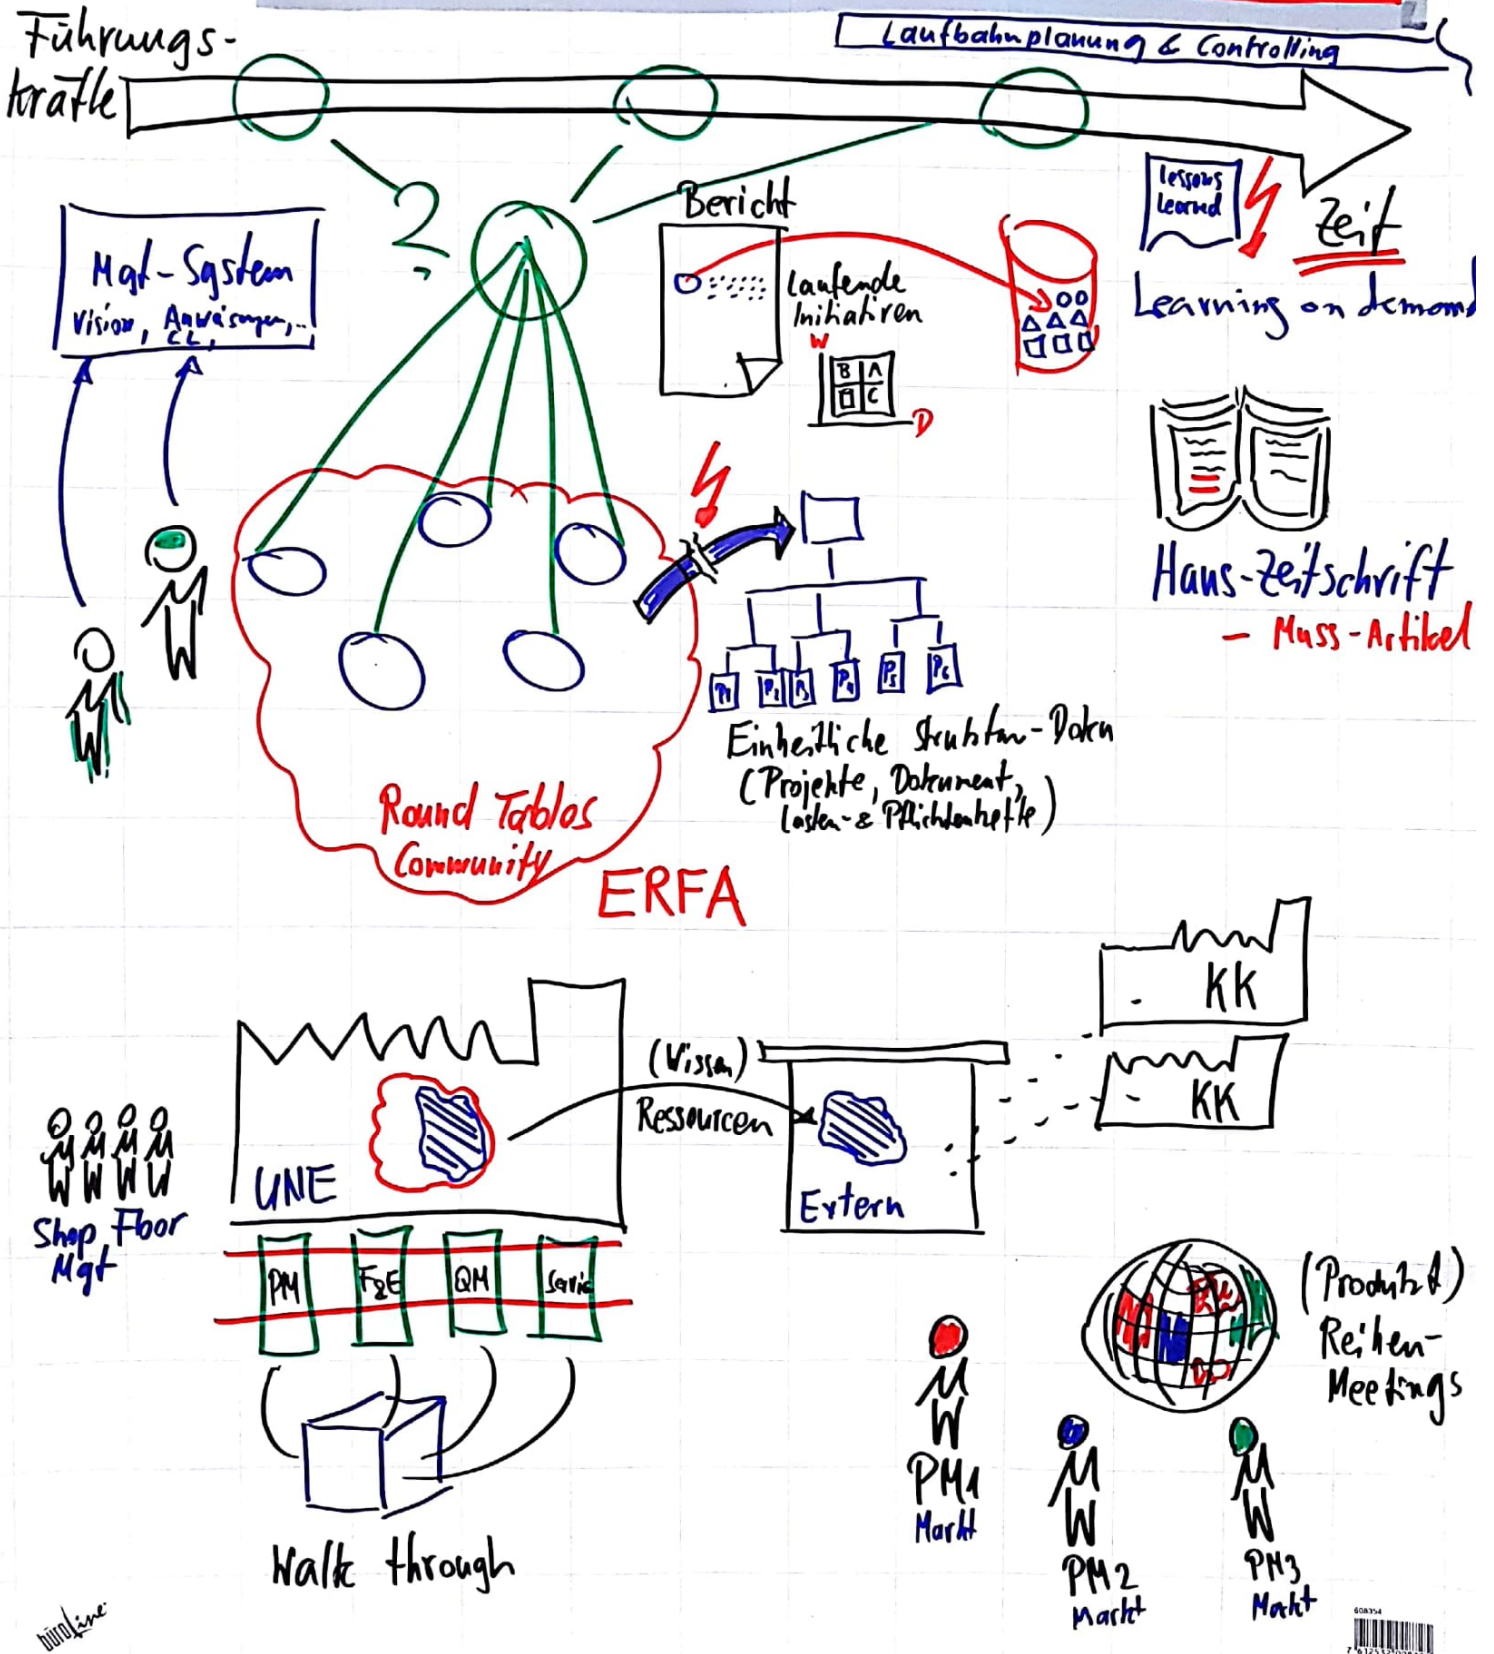 Führungs-
kräfte
Laufbahnplanung & Controlling
Mgt-System
Vision, Anweisungen, ..
CL,
?
Bericht
Laufende
Initiativen
W
B A
C
D
lessons
learned
Zeit
Learning on demand
Haus-Zeitschrift
- Muss-Artikel
P1 P2 P3 P4 P5 P6
Einheitliche Struktur-Daten
(Projekte, Dokument,
Lasten- & Pflichtenhefte)
Round Tables
Community
ERFA
KK
KK
(Wissen)
Ressourcen
UNE
Extern
Shop Floor
Mgt
PM
F&E
QM
Servic
Walk through
(Produkt)
Reihen-
Meetings
PM1
Markt
PM2
Markt
PM3
Markt
büroLine
608354